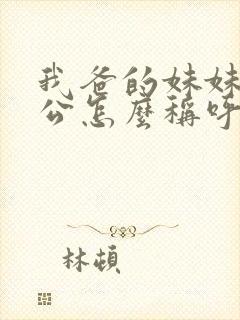 我爸的妹妹
公怎麼稱呼
林頓